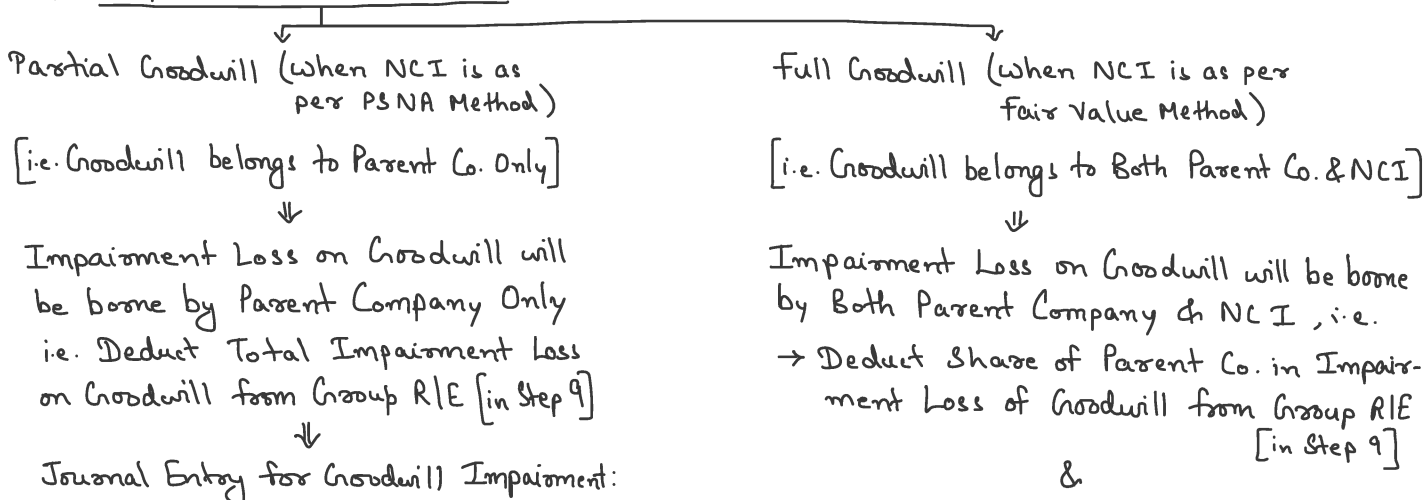 Partial Goodwill (when NCI is as
per PSNA Method)
[i.e. Goodwill belongs to Parent Co. Only]
⇓
Impairment Loss on Goodwill will
be borne by Parent Company Only
i.e. Deduct Total Impairment Loss
on Goodwill from Group R/E [in Step 9]
⇓
Journal Entry for Goodwill Impairment:
Full Goodwill (when NCI is as per
Fair Value Method)
[i.e. Goodwill belongs to Both Parent Co. & NCI]
⇓
Impairment Loss on Goodwill will be borne
by Both Parent Company & NCI, i.e.
→ Deduct Share of Parent Co. in Impair-
ment Loss of Goodwill from Group R/E
[in Step 9]
&